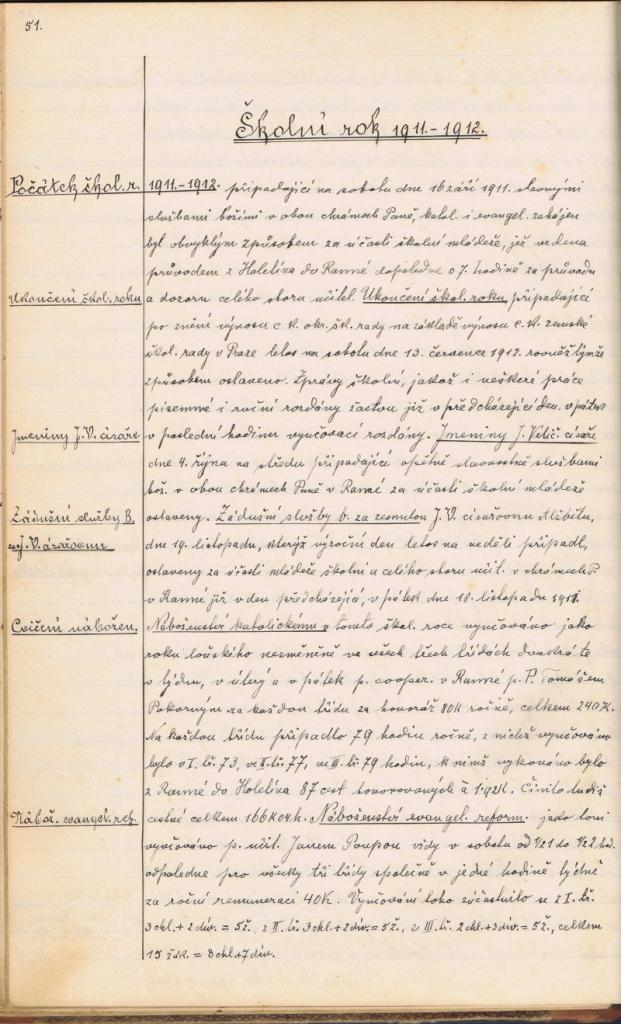 51.
Školní rok 1911.-1912.
Počátek škol. r. 1911.-1912. připadající na sobotu dne 16 září 1911. slavnými
službami božími v obou chrámech Páně, katol. i evangel. zahájen
byl obvyklým způsobem za účasti školní mládeže, jež vedena
průvodem z Holetína do Ranné dopoledne o 7. hodině za průvodu
Ukončení škol. roku a dozoru celého sboru učitel. Ukončení škol. roku, připadající
po znění výnosu c. k. okr. šk. rady na základě výnosu c. k. zemské
škol. rady v Praze letos na sobotu dne 13. července 1912. rovněž týmže
způsobem oslaveno. Zprávy školní, jakož i veškeré práce
písemné i ruční rozdány žactvu již v předcházející den, v pátek
Jmeniny J. V. císaře v poslední hodinu vyučovací rozdány. Jmeniny J. Velič. císaře
dne 4. října na středu připadající opětně slavnostně službami
bož. v obou chrámech Páně v Ranné za účasti školní mládeže
Zádušní služby B. oslaveny. Zádušní služby b. za zesnulou J. V. císařovnu Alžbětu,
za J. V. císařovnu dne 19. listopadu, kterýž výroční den letos na neděli připadl,
oslaveny za účasti mládeže školní a celého sboru učit. v chrámech P.
v Ranné již v den předcházející, v pátek dne 18. listopadu 1911.
Cvičení nábožen. Náboženství katolickému v tomto škol. roce vyučováno jako
roku loňského nezměněně ve všech třech třídách dvakrát
v týdnu, v úterý a v pátek p. cooper. v Ranné p. P. Tomášem
Pokorným za každou třídu za honorář 80K ročně, celkem 240K.
Na každou třídu připadlo 79 hodin ročně, z nichž vyučováno
bylo v I. tř. 73, ve II. tř. 77, ve III. tř. 79 hodin, k nimž vykonáno bylo
z Ranné do Holetína 87 cest honorovaných à 1·92K. Činilo tudíž
Nábož. evangel. ref. cestné celkem 166K04h. Náboženství evangel. reform. jako loni
vyučováno p. učit. Janem Poupou vždy v sobotu od ½1 do ½2 hod.
odpoledne pro všecky tři třídy společně v jedné hodině týdně
za roční remuneraci 40K. Vyučování toho súčastnilo se z I. tř.
3 chl. + 2 dív. = 5 ž., z II. tř. 3 chl. + 2 dív. = 5 ž., z III. tř. 2 chl. + 3 dív. = 5 ž., celkem
15 žák. = 8 chl + 7 dív.